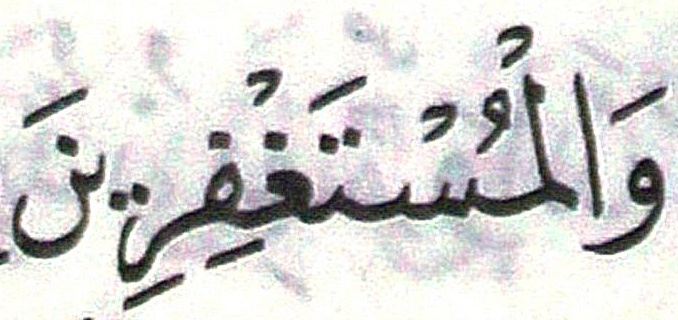 وَالْمُسْتَغْفِرِينَ